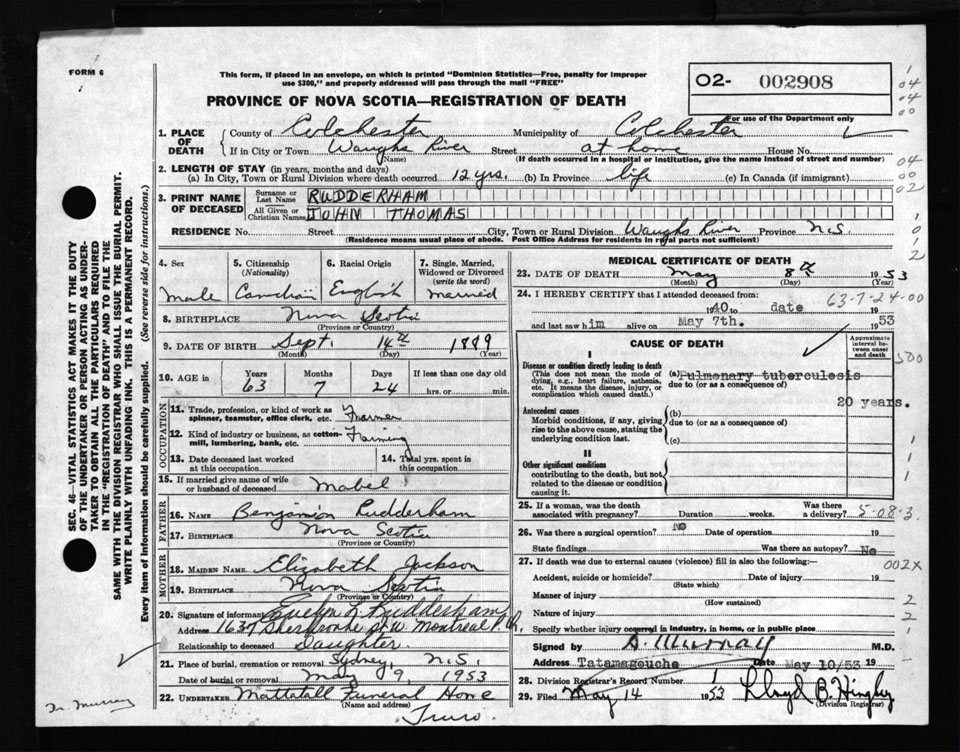 FORM 6
This form, if placed in an envelope, on which is printed "Dominion Statistics—Free, penalty for improper
use $300," and properly addressed will pass through the mail "FREE"
O2- 002908
For use of the Department only
PROVINCE OF NOVA SCOTIA—REGISTRATION OF DEATH
1. PLACE OF DEATH { County of Colchester Municipality of Colchester
If in City or Town Waughs River Street at home House No.
(Name) (If death occurred in a hospital or institution, give the name instead of street and number)
2. LENGTH OF STAY (in years, months and days)
(a) In City, Town or Rural Division where death occurred 12 yrs. (b) In Province life (c) In Canada (if immigrant)
3. PRINT NAME OF DECEASED { Surname or Last Name RUDDERHAM
All Given or Christian Names JOHN THOMAS
RESIDENCE No. Street City, Town or Rural Division Waughs River Province N.S.
(Residence means usual place of abode. Post Office Address for residents in rural parts not sufficient)
4. Sex Male
5. Citizenship (Nationality) Canadian
6. Racial Origin English
7. Single, Married, Widowed or Divorced (write the word) Married
8. BIRTHPLACE Nova Scotia
(Province or Country)
9. DATE OF BIRTH Sept. 14th 1889
(Month) (Day) (Year)
10. AGE in { Years 63 Months 7 Days 24 If less than one day old hrs. or min.
OCCUPATION
11. Trade, profession, or kind of work as spinner, teamster, office clerk, etc. Farmer
12. Kind of industry or business, as cotton-mill, lumbering, bank, etc. Farming
13. Date deceased last worked at this occupation
14. Total yrs. spent in this occupation
15. If married give name of wife or husband of deceased Mabel
FATHER
16. NAME Benjamin Rudderham
17. BIRTHPLACE Nova Scotia
(Province or Country)
MOTHER
18. MAIDEN NAME Elizabeth Jackson
19. BIRTHPLACE Nova Scotia
(Province or Country)
20. Signature of informant Evelyn Rudderham
Address 1637 Sherbrooke St W Montreal P.Q.
Relationship to deceased Daughter
21. Place of burial, cremation or removal Sydney, N.S.
Date of burial or removal May 9, 1953
22. UNDERTAKER Mattatall Funeral Home
(Name and address)
Truro.
MEDICAL CERTIFICATE OF DEATH
23. DATE OF DEATH May 8th 1953
(Month) (Day) (Year)
24. I HEREBY CERTIFY that I attended deceased from: 63-7-24-00
1940 to date 19
and last saw him alive on May 7th. 1953
CAUSE OF DEATH
Approximate interval between onset and death
I
Disease or condition directly leading to death
(This does not mean the mode of dying, e.g., heart failure, asthenia, etc. It means the disease, injury, or complication which caused death.)
(a) Pulmonary tuberculosis
due to (or as a consequence of)
20 years.
Antecedent causes
Morbid conditions, if any, giving rise to the above cause, stating the underlying condition last.
(b)
due to (or as a consequence of)
(c)
II
Other significant conditions
contributing to the death, but not related to the disease or condition causing it.
25. If a woman, was the death associated with pregnancy? Duration weeks. Was there a delivery? 5-08-3
26. Was there a surgical operation? No Date of operation 19
State findings Was there an autopsy? No
27. If death was due to external causes (violence) fill in also the following:— 002X
Accident, suicide or homicide? Date of injury 19
(State which)
Manner of injury
(How sustained)
Nature of injury
Specify whether injury occurred in industry, in home, or in public place
Signed by D. Murray M.D.
Address Tatamagouche Date May 10/53 19
28. Division Registrar's Record Number 1
29. Filed May 14 1953 Lloyd B.
(Division Registrar)
SEC. 46—VITAL STATISTICS ACT MAKES IT THE DUTY
OF THE UNDERTAKER OR PERSON ACTING AS UNDER-
TAKER TO OBTAIN ALL THE PARTICULARS REQUIRED
IN THE "REGISTRATION OF DEATH" AND TO FILE THE
SAME WITH THE DIVISION REGISTRAR WHO SHALL ISSUE THE BURIAL PERMIT.
WRITE PLAINLY WITH UNFADING INK. THIS IS A PERMANENT RECORD.
Every item of information should be carefully supplied. (See reverse side for instructions.)
1
04
04
00
04
00
02
1
0
1
2
500
1
1
1
2
2
1
Murray